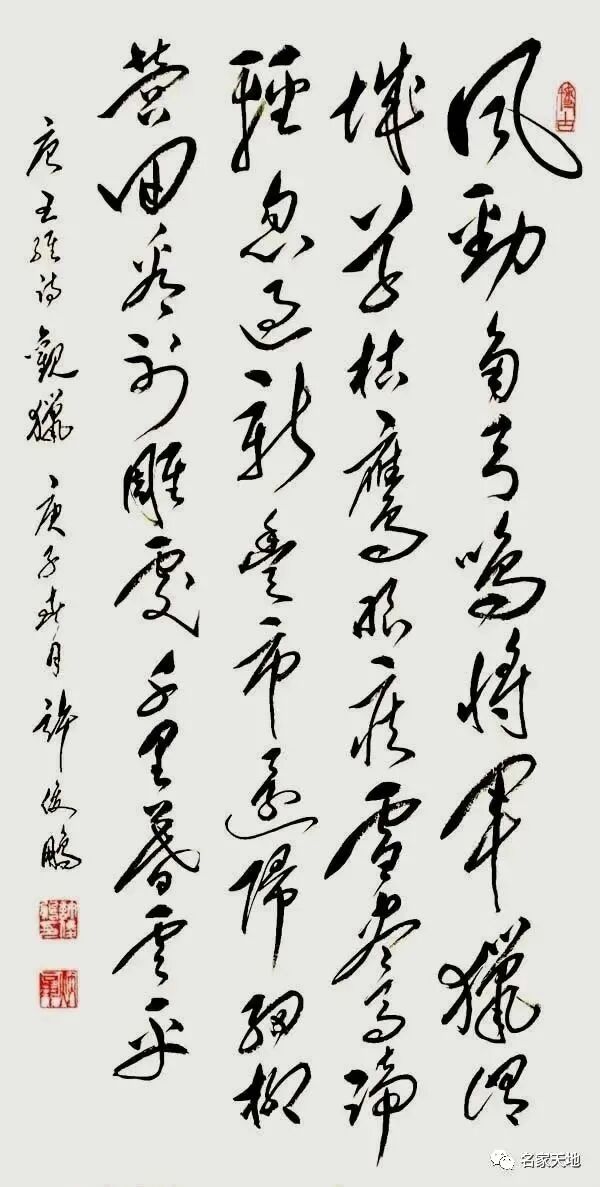 風勁角弓鳴將軍獵渭
城草枯鷹眼疾雪盡馬蹄
輕忽過新豐市還歸細柳
營回看射雕處千里暮雲平
唐王維詩觀獵庚子春月許俊鵬
名家天地